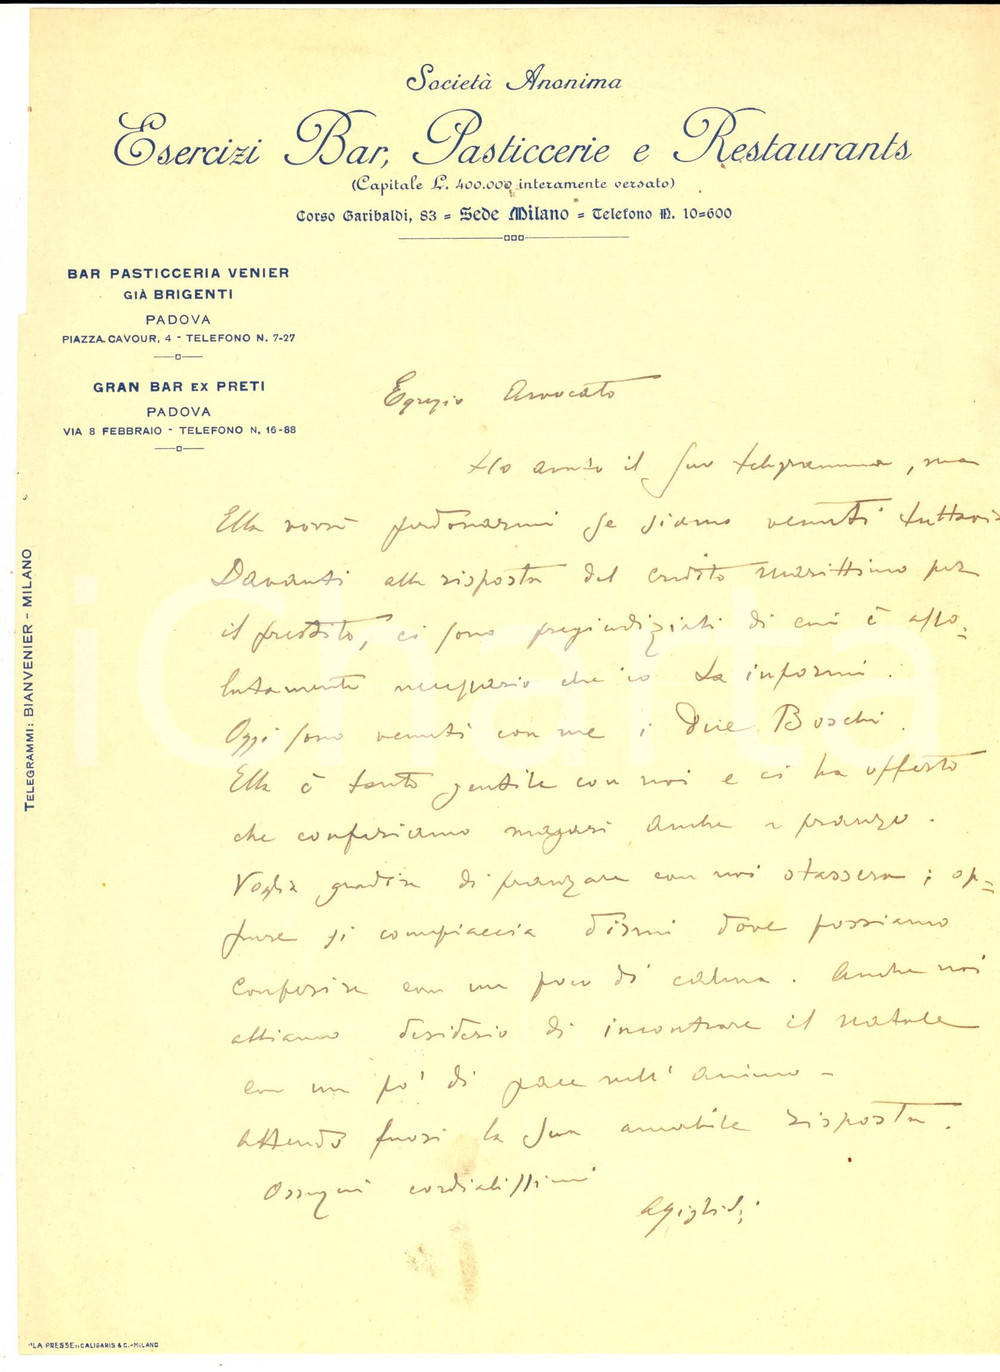 Società Anonima
Esercizi Bar, Pasticcerie e Restaurants
(Capitale L. 400.000 interamente versato)
Corso Garibaldi, 83 = Sede Milano = Telefono N. 10=600
BAR PASTICCERIA VENIER
GIÀ BRIGENTI
PADOVA
PIAZZA CAVOUR, 4 - TELEFONO N. 7-27
GRAN BAR EX PRETI
PADOVA
VIA 8 FEBBRAIO - TELEFONO N. 16-88
TELEGRAMMI: BIANVENIER - MILANO
Egregio Avvocato
Ho avuto il Suo telegramma, ma
Ella vorrà perdonarmi se siamo venuti tuttavia
Davanti alla risposta del Credito Marittimo per
il prestito, ci sono pregiudiziali di cui è asso=
lutamente necessario che io La informi.
Oggi sono venuti con me i Due Boschi.
Ella è tanto gentile con noi e ci ha offerto
che conferiamo magari anche a pranzo.
Voglia gradire di pranzare con noi stassera; op=
pure si compiaccia dirmi dove possiamo
Conferire con un poco di calma. Anche noi
abbiamo desiderio di incontrare il natale
con un po' di pace nell'animo -
Attendo fuori la Sua amabile risposta.
Ossequi cordialissimi
iCharta
"LA PRESSE" CALIGARIS & C. - MILANO